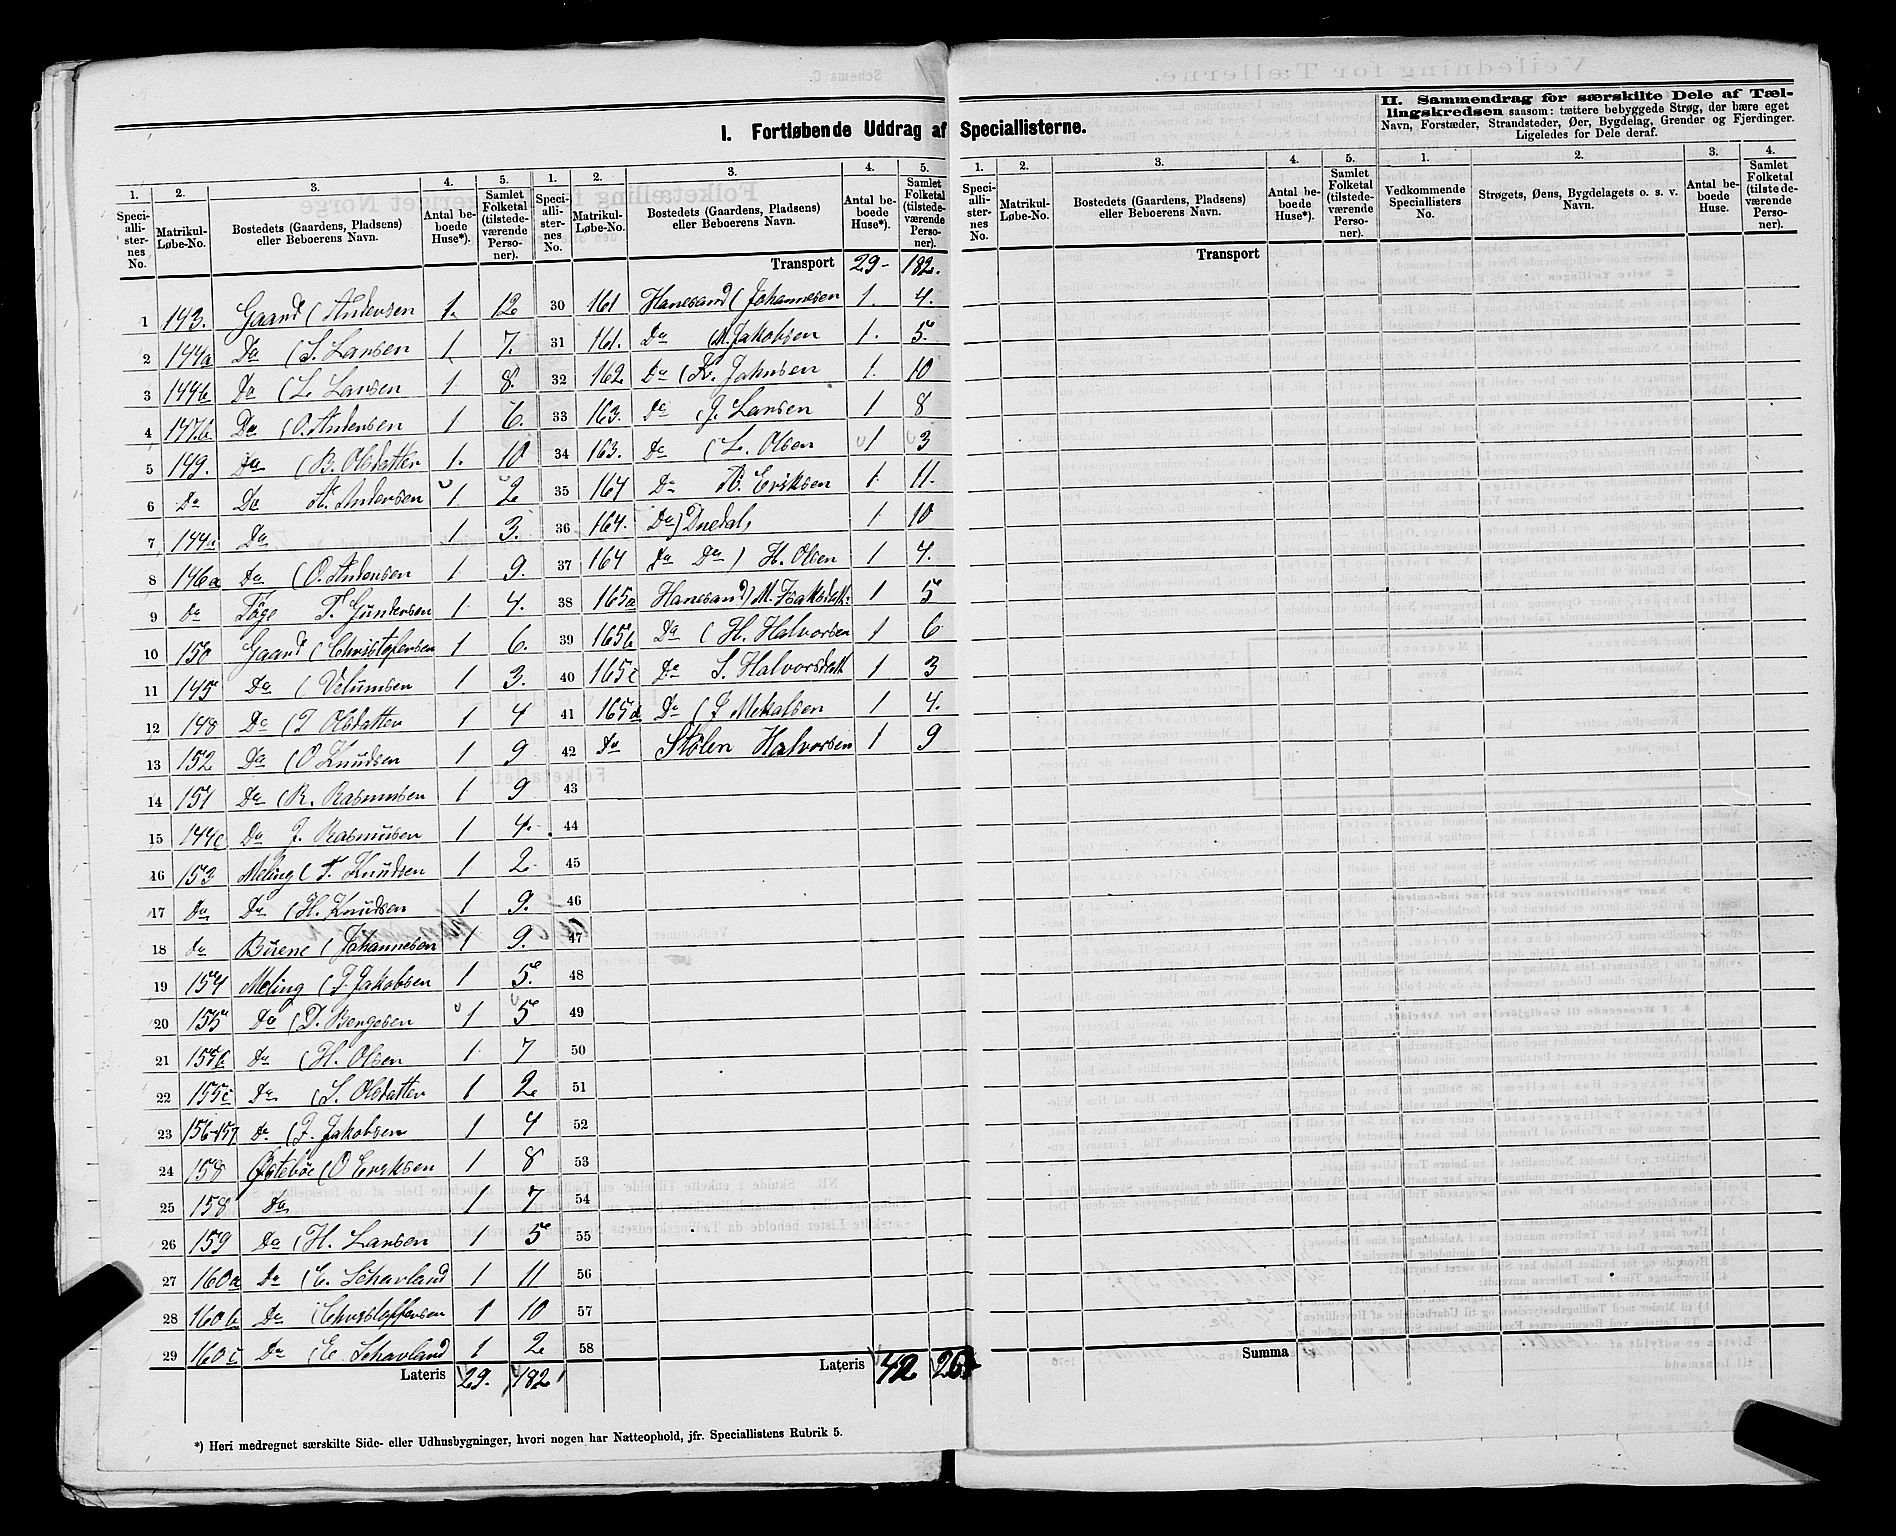 I. Fortløbende Uddrag af Speciallisterne.
II. Sammendrag for særskilte Dele af Tællingskredsen saasom: tættere bebyggede Strøg, der bære eget
Navn, Forstæder, Strandsteder, Øer, Bygdelag, Grender og Fjerdinger.
Ligeledes for Dele deraf.
1. 2. 3. 4. 5. 1. 2. 3. 4. 5. 1. 2. 3. 4. 5. 1. 2. 3. 4.
Speciallisternes No. Matrikul-Løbe-No. Bostedets (Gaardens, Pladsens) eller Beboerens Navn. Antal beboede Huse*). Samlet Folketal (tilstedeværende Personer).
Speciallisternes No. Matrikul-Løbe-No. Bostedets (Gaardens, Pladsens) eller Beboerens Navn. Antal beboede Huse*). Samlet Folketal (tilstedeværende Personer).
Speciallisternes No. Matrikul-Løbe-No. Bostedets (Gaardens, Pladsens) eller Beboerens Navn. Antal beboede Huse*). Samlet Folketal (tilstedeværende Personer).
Vedkommende Speciallisters No. Strøgets, Øens, Bygdelagets o. s. v. Navn. Antal beboede Huse. Samlet Folketal (tilstedeværende Personer).
1 143. Gaard (Andersen 1. 12
2 144a Do (S. Larsen 1 7.
3 144b Do (L. Larsen 1 8
4 147b Do (O. Andersen 1 6.
5 149. Do (B. Olsdatter 1. 10
6 Do Do A. Andersen 1. 2
7 144 Do 1 3.
8 146a Do (O. Andersen 1 9.
9 Do T. Gundersen 1 4.
10 150 Gaard (Christofersen 1 6.
11 145 Do (Velumsen 1 3.
12 148 Do (T Olsdatter 1 4
13 152 Do (O Knudsen 1 9
14 151 Do (R. Rasmusen 1 9
15 144c Do J. Rasmusen 1 4.
16 153 Meling (T. Knudsen 1 2
17 Do Do (H. Knudsen 1 9.
18 Do Buene (Johannesen 1 9.
19 154 Meling (J. Jakobsen 1 5.
20 155 Do (T. Bengtsen 1 5
21 155b Do (H. Olsen 1 7
22 155c Do (S. Olsdatter 1 2
23 156-157 Do (J. Jakobsen 1 4
24 158 Østebøe (O Eriksen 1 8
25 158 Do 1 7
26 159 Do (H. Larsen 1 5
27 160a Do (E. Schavland 1 11
28 160b Do (Christoffersen 1 10
29 160c Do (E. Schavland 1 2
Lateris 29. 182
Transport 29- 182.
30 161 Hanesand (Johannesen 1. 4.
31 161. Do (M. Jakobsen 1. 5.
32 162 Do (K. Jahnsen 1. 10
33 163. Do (J. Larsen 1 8
34 163. Do (L. Olsen 1 3
35 164 Do B. Eriksen 1 11.
36 164. Do) Duedal, 1 10
37 164 Do Do) H. Olsen 1 4.
38 165a Hanesand) M. Isaksdatt: 1 5
39 165b Do (H. Halvorsen 1 6
40 165c Do S. Halvorsdatt 1 3
41 165d Do (J Mekalsen 1 4.
42 Do Stølen Halvorsen 1 9
43
44
45
46
47
48
49
50
51
52
53
54
55
56
57
58
Lateris 42
Transport
Summa
*) Heri medregnet særskilte Side- eller Udhusbygninger, hvori nogen har Natteophold, jfr. Speciallistens Rubrik 5.